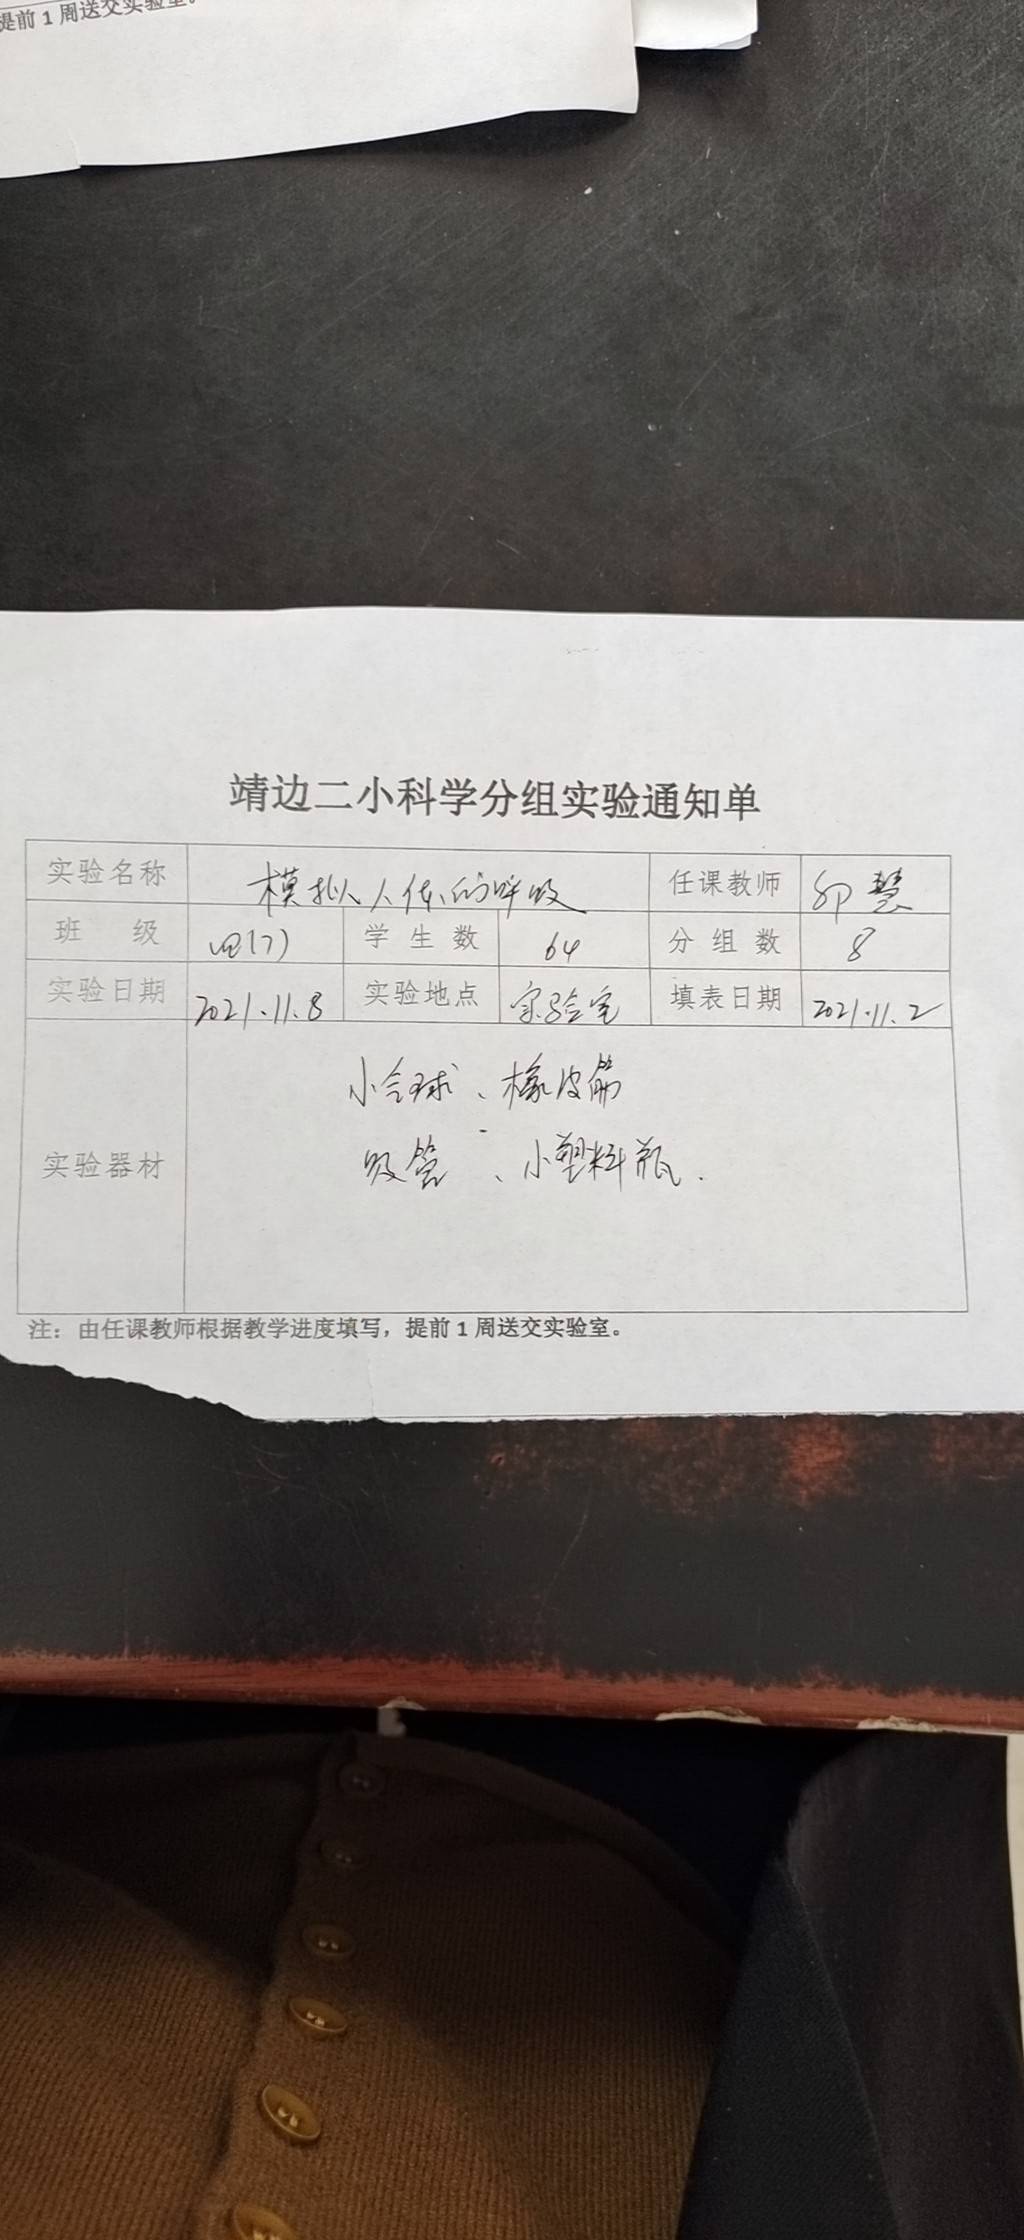 提前1周送交实验室。
靖边二小科学分组实验通知单
实验名称 模拟人体的呼吸 任课教师 慧
班 级 四(7) 学生数 64 分组数 8
实验日期 2021.11.8 实验地点 实验室 填表日期 2021.11.2
小气球、橡皮筋
实验器材 吸管、小塑料瓶.
注：由任课教师根据教学进度填写，提前1周送交实验室。